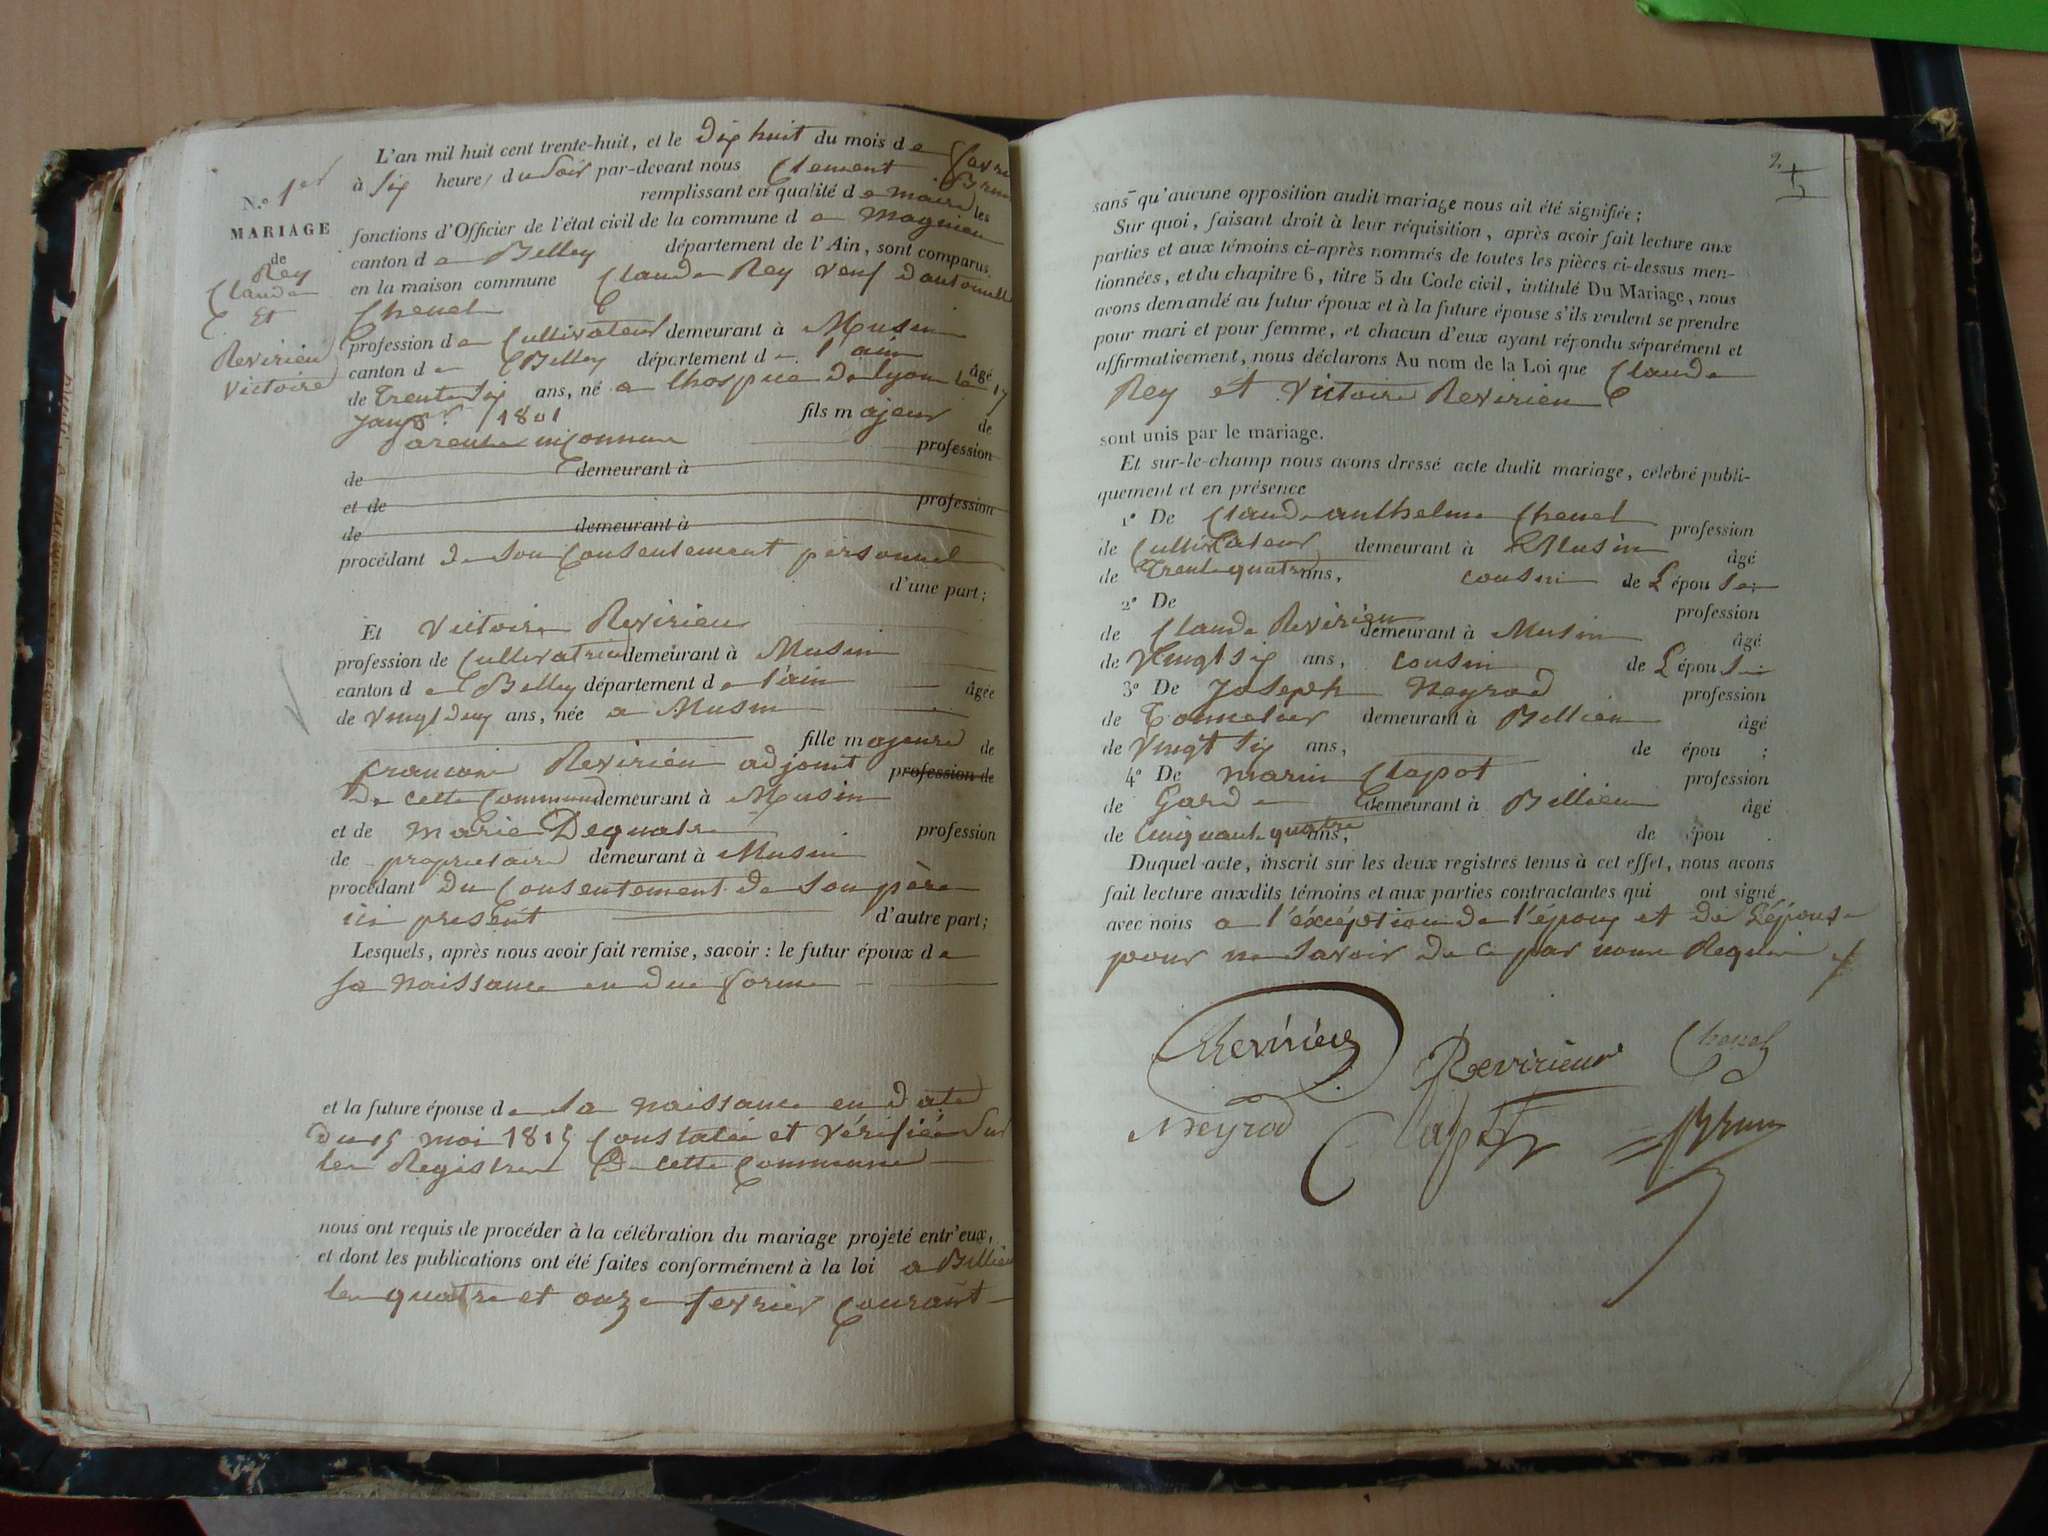 N.º 1er
MARIAGE
de
Rey
Claude
Et
Revirieu
Victoire
L'an mil huit cent trente-huit, et le dix huit du mois de
à six heures du soir par-devant nous Clement Brun
remplissant en qualité de maire les
fonctions d'Officier de l'état civil de la commune de Magnieu
canton de Belley département de l'Ain, sont comparus
en la maison commune Claude Rey veuf
Chenel
profession de Cultivateur demeurant à Musin
canton de Belley département de l'ain âgé
de Trente six ans, né a lhospice de Lyon le 17
1801 fils majeur de
parents inconnue profession
de demeurant à
et de profession
de demeurant à
procédant de son Consentement personnel
d'une part;
Et Victoire Revirieu
profession de Cultivatrice demeurant à Musin
canton de Belley département de l'ain âgée
de vingt deux ans, née a Musin
fille majeure de
francois Revirieu adjoint profession de
de cette Commune demeurant à Musin
et de Marie Dequatre profession
de propriétaire demeurant à Musin
procédant du Consentement de son père
ici présent d'autre part;
Lesquels, après nous avoir fait remise, savoir : le futur époux de
sa naissance en due forme
et la future épouse de sa naissance en date
du 15 mai 1815 Constatée et vérifiée sur
les Registres de cette Commune
nous ont requis de procéder à la célébration du mariage projeté entr'eux,
et dont les publications ont été faites conformément à la loi a Billieu
les quatre et onze fevrier Courant
2
sans qu'aucune opposition audit mariage nous ait été signifiée;
Sur quoi, faisant droit à leur réquisition, après avoir fait lecture aux
parties et aux témoins ci-après nommés de toutes les pièces ci-dessus men-
tionnées, et du chapitre 6, titre 5 du Code civil, intitulé Du Mariage, nous
avons demandé au futur époux et à la future épouse s'ils veulent se prendre
pour mari et pour femme, et chacun d'eux ayant répondu séparément et
affirmativement, nous déclarons Au nom de la Loi que Claude
Rey et Victoire Revirieu
sont unis par le mariage.
Et sur-le-champ nous avons dressé acte dudit mariage, célébré publi-
quement et en présence
1º De Claude anthelme Chenel profession
de Cultivateur demeurant à Musin âgé
de Trente quatre ans, cousin de L'épouse;
2º De profession
de Claude Revirieu demeurant à Musin âgé
de vingt six ans, cousin de L'épou
3º De Joseph Neyrod profession
de Tonnelier demeurant à Billieu âgé
de vingt six ans, de épou ;
4º De marin Clapot profession
de Garde demeurant à Billieu âgé
de Cinquante quatre ans, de épou .
Duquel acte, inscrit sur les deux registres tenus à cet effet, nous avons
fait lecture auxdits témoins et aux parties contractantes qui ont signé
avec nous a l'éxéption de l'époux et de L'épouse
pour ne savoir de ce par nous Requi
Revirieu Revirieux Chenel
Neyrod Clapot Brun